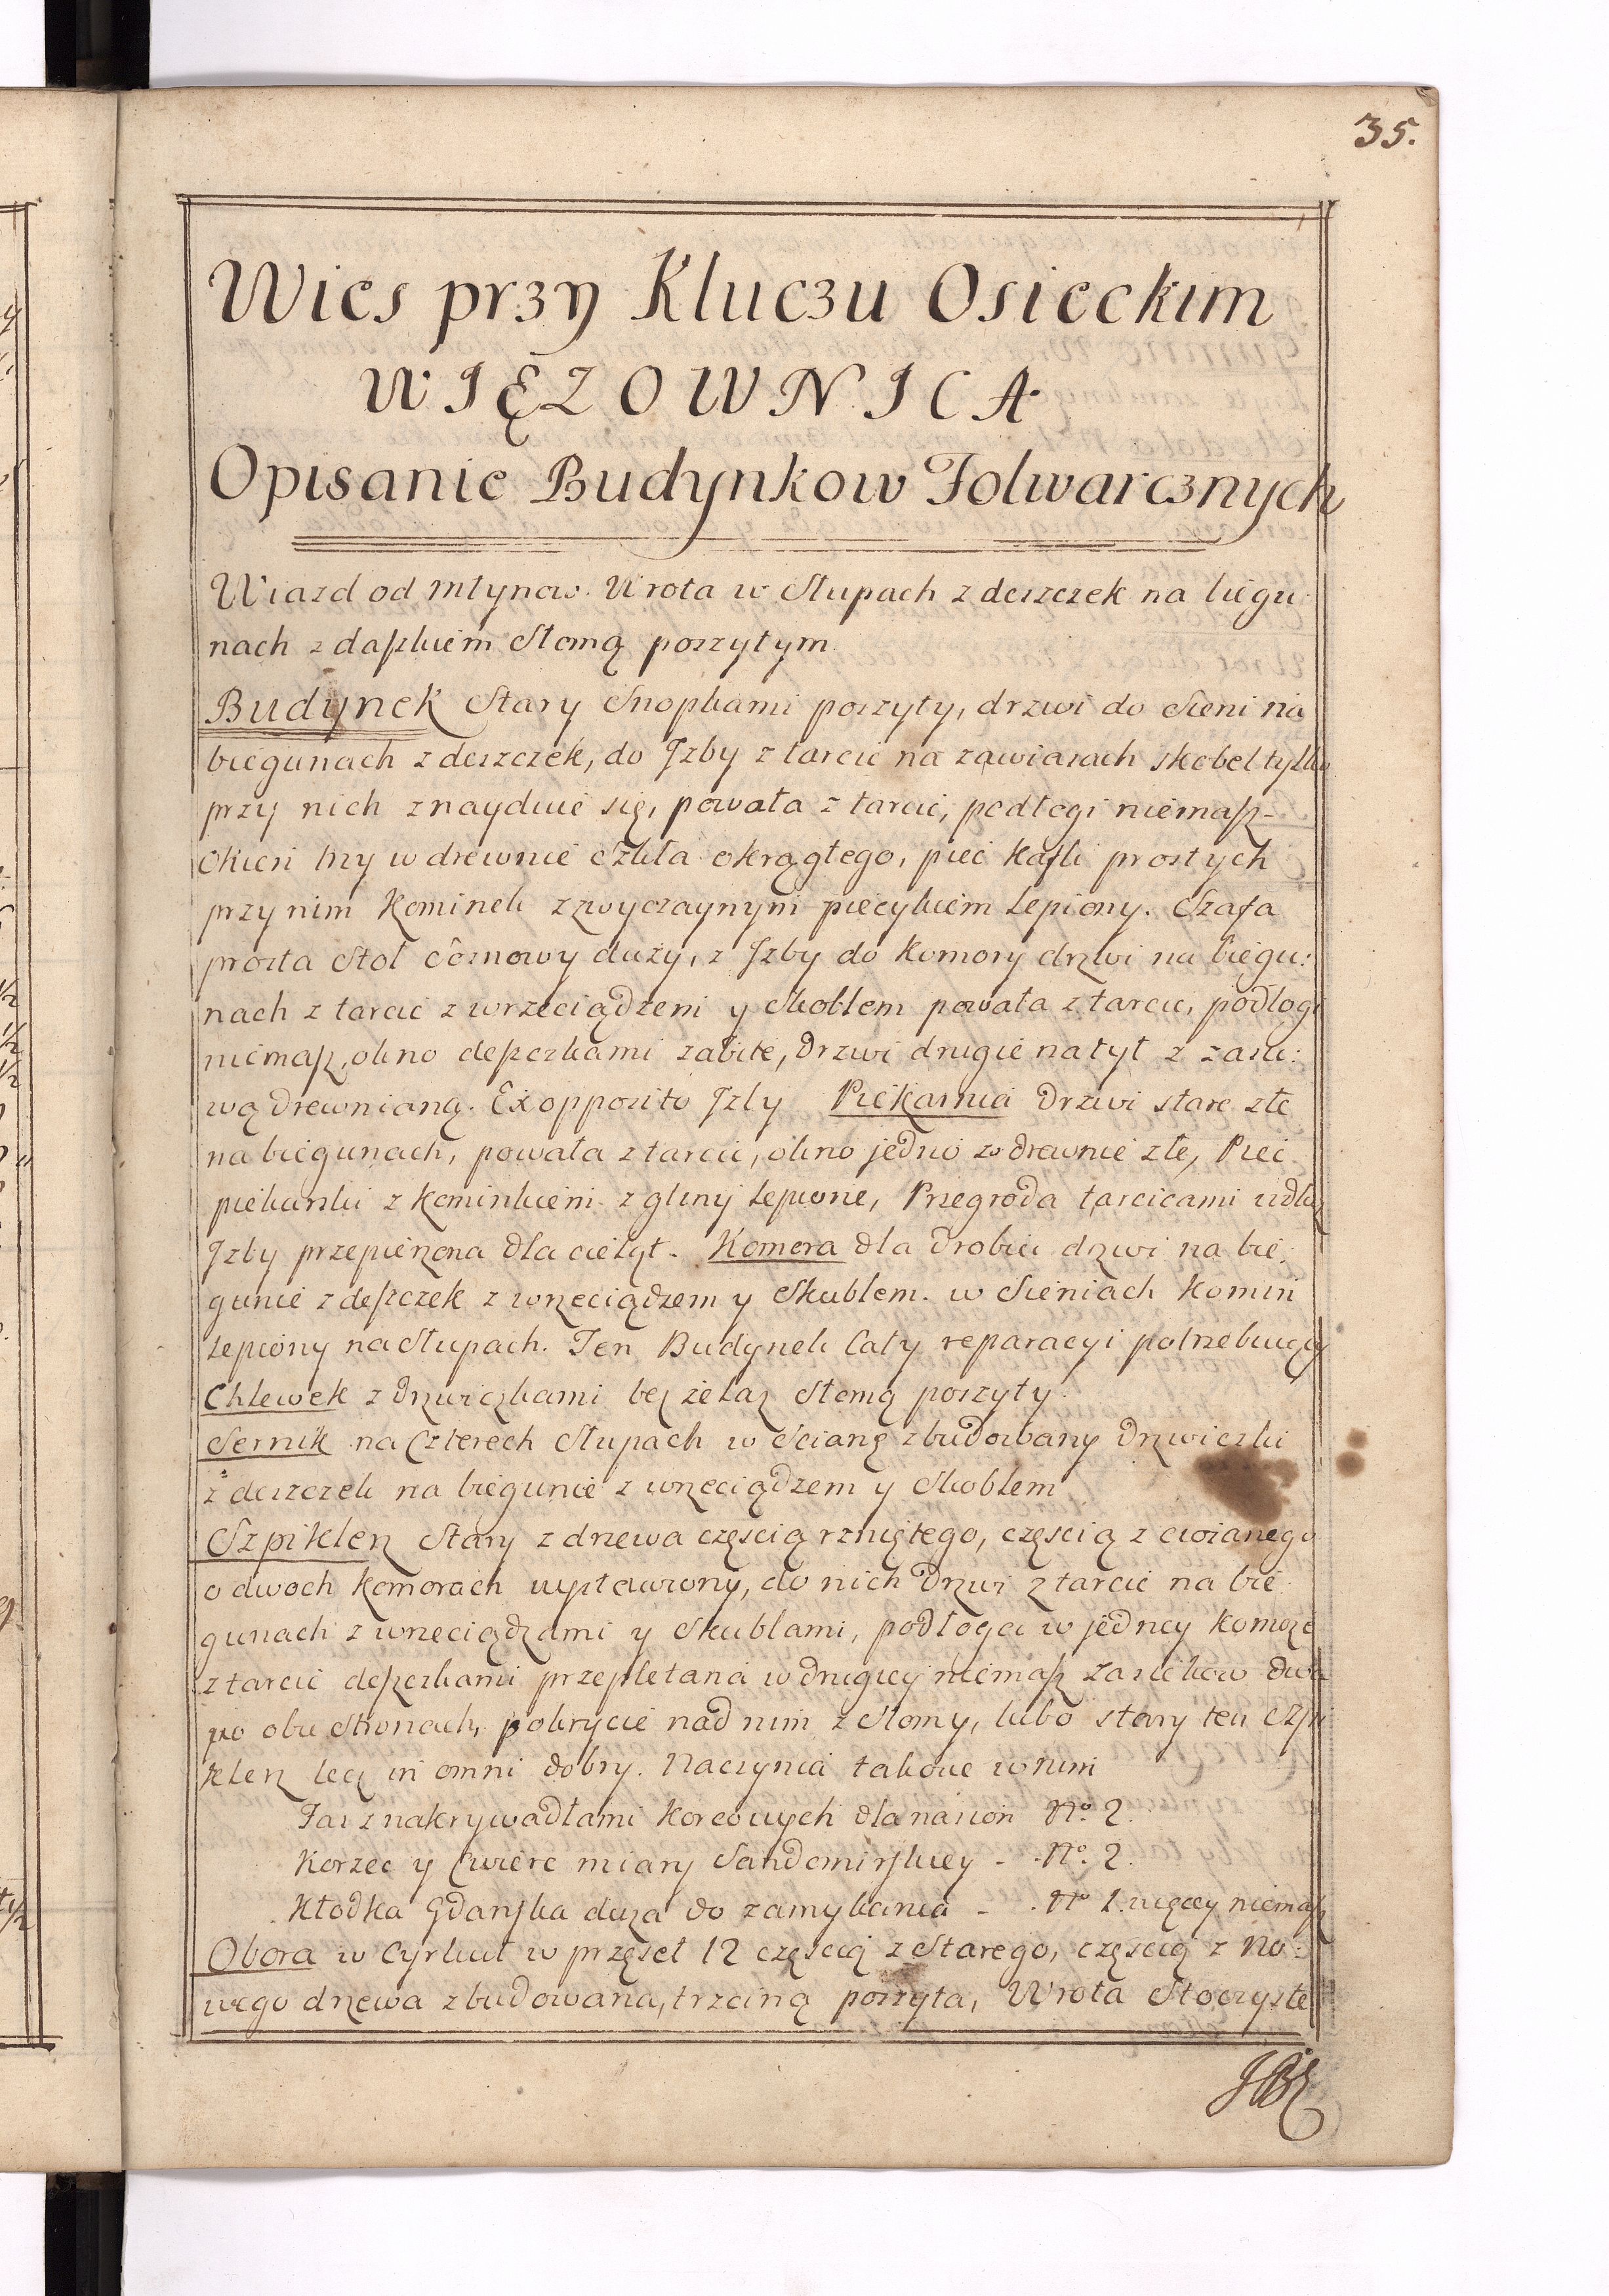 35.
Wies przy Kluczu Osieckim
WIĘZOWNICA
Opisanie Budynkow Folwarcznych
Wiazd od Młynow. Wrota w Słupach z deszczek na biegu
nach z daszkiem Słomą poszytym
Budynek Stary Snopkami poszyty, drzwi do Sieni na
biegunach z deszczek, do Jzby z tarcic na zawiasach skobel tylko
przy nich znayduie się, powała z tarcic, podłogi niemasz
Okien trzy w drewnie Szkła okrągłego, piec kafli prostych
przy nim Kominek z zwyczaynym piecykiem Lepiony. Szafa
prosta Stol sosnowy duży, z Jzby do Komory drzwi na biegu:
nach z tarcic z wrzeciądzem y Skoblem powała z tarcic, podłogi
niemasz, okno deszczkami zabite, Drzwi drugie na tył z zasu:
wą Drewnianą. Ex opposito Jzby Piekarnia Drzwi stare złe
na biegunach, powała z tarcic, okno jedno w Drewnie złe, Piec
piekarski z kominkiem z gliny Lepione, Przegroda tarcicami wdłuż
Jzby przepierzona dla cieląt. Komora dla Drobiu drzwi na bie:
gunie z deszczek z wrzeciądzem y Skublem. w Sieniach Komin
Lepiony na Słupach. Ten Budynek Cały reparacyi potrzebuiący
Chlewek z Drzwiczkami bez żelaz Słomą poszyty
Sernik na Czterech Słupach w Scianę zbudowany Drzwiczki
z deszczek na biegunie z wrzeciądzem y Skoblem
Szpiklerz Stary z drzewa częscią rzniętego, częscią z ciosanego
o dwoch Komorach wystawiony, do nich Drzwi z tarcic na bie
gunach z wrzeciądzami y Skublami, podłoga w jedney Komorze
z tarcic deszczkami przepletana w Drugiey niemasz Zasiekow Dwa
po obu Stronach, pokrycie nad nim z Słomy, lubo stary ten Szpi
klerz lecz in omni dobry. Naczynia takowe w nim
Fas z nakrywadłami Korcowych dla nasion No. 2.
Korzec y Cwierc miary Sandomirskiey - No. 2.
Kłodka Gdanska duża Do zamykania - No 1. więcey niemasz
Obora w Cyrkuł w przęseł 12 częscią z Starego, częscią z No:
wego drzewa zbudowana, trzciną poszyta, Wrota Stoczyste